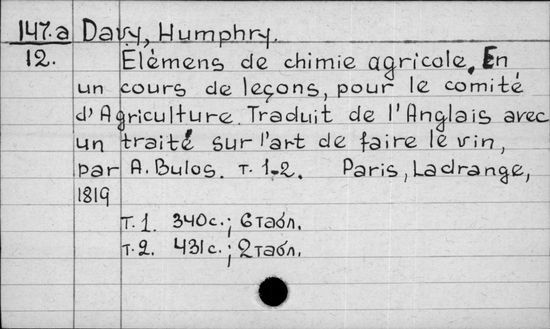 147.a Davy, Humphry.
12. Élémens de chimie agricole. En
un cours de leçons, pour le comité
d'Agriculture. Traduit de l'Anglais avec
un traité sur l'art de faire le vin,
par A. Bulos. т. 1-2. Paris, Ladrange,
1819
Т.1. 340с.; 6 табл.
т.2. 431с.; 2 табл.